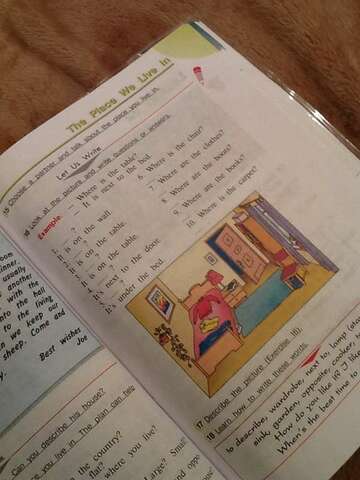 The Place We Live in
15 Choose a partner and talk about the place you live in.
Let Us Write
16 Look at the picture and write questions or answers.
Example: — Where is the table?
— It is next to the bed.
1. —
It is on the wall.
2. —
It's on the table.
3. —
It's on the table.
4. —
It's next to the door.
5. —
It's under the bed.
6. Where is the chair?
7. Where are the clothes?
8. Where are the boots?
9. Where are the books?
10. Where is the carpet?
17 Describe the picture (Exercise 16).
18 Learn how to write these words.
to describe, wardrobe, next to, lamp
sink, garden, opposite, cooker,
How do you like it? I like
When's the best time to
room
usually
another
with the
into the hall
to the living
we keep our
sheep. Come and
Best wishes
Joe
Can you describe his house?
you live in. The plan can help
the country?
flat?
where you live?
Large? Small
and oppo